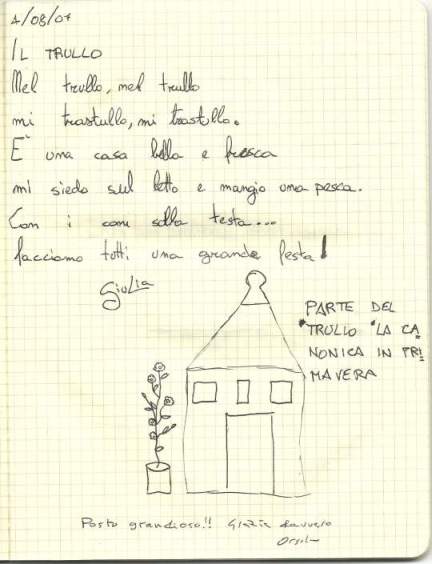 1/08/07
IL TRULLO
Nel trullo, nel trullo
mi trastullo, mi trastullo.
È una casa bella e fresca
mi siedo sul letto e mangio una pesca.
Con i coni sulla testa...
facciamo tutti una grande festa!
Giulia
PARTE DEL
"TRULLO "LA CA
NONICA IN PRI
MAVERA
Posto grandioso!! Grazie davvero